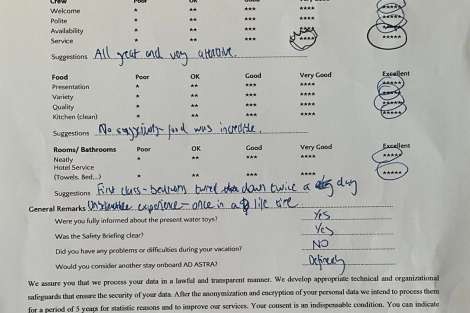 Crew Poor OK Good Very Good Excellent
Welcome * ** *** **** *****
Polite * ** *** **** *****
Availability * ** *** **** *****
Service * ** *** **** *****
Suggestions All great and very attentive.
Food Poor OK Good Very Good Excellent
Presentation * ** *** **** *****
Variety * ** *** **** *****
Quality * ** *** **** *****
Kitchen (clean) * ** *** **** *****
Suggestions No suggestions - food was incredible.
Rooms/ Bathrooms Poor OK Good Very Good Excellent
Neatly * ** *** **** *****
Hotel Service
(Towels, Bed...) * ** *** **** *****
Suggestions First class - bedrooms turned down twice a day
General Remarks experience - once in a life time.
Were you fully informed about the present water toys? Yes
Was the Safety Briefing clear? Yes
Did you have any problems or difficulties during your vacation? NO
Would you consider another stay onboard AD ASTRA? Definitely
We assure you that we process your data in a lawful and transparent manner. We develop appropriate technical and organizational
safeguards that ensure the security of your data. After the anonymization and encryption of your personal data we intend to process them
for a period of 5 years for statistic reasons and to improve our services. Your consent is an indispensable condition. You can indicate